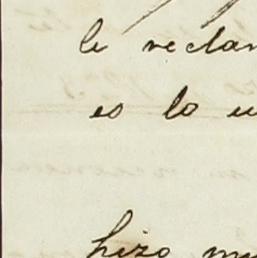 le reclam
es lo u
hizo mu